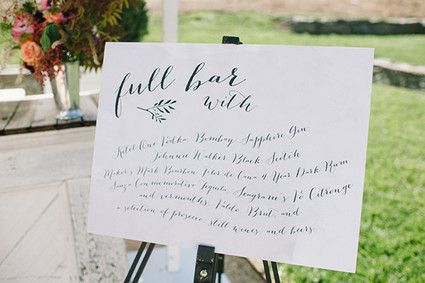 full bar
with
Ketel One Vodka, Bombay Sapphire Gin
Johnnie Walker Black Scotch
Maker's Mark Bourbon, Flor de Cana 4 Year Dark Rum
Sauza Conmemorativo Tequila, Seagram's Vo Citronge
and vermouths, Valdo, Brut, and
a selection of prosecco, still wines, and beers.